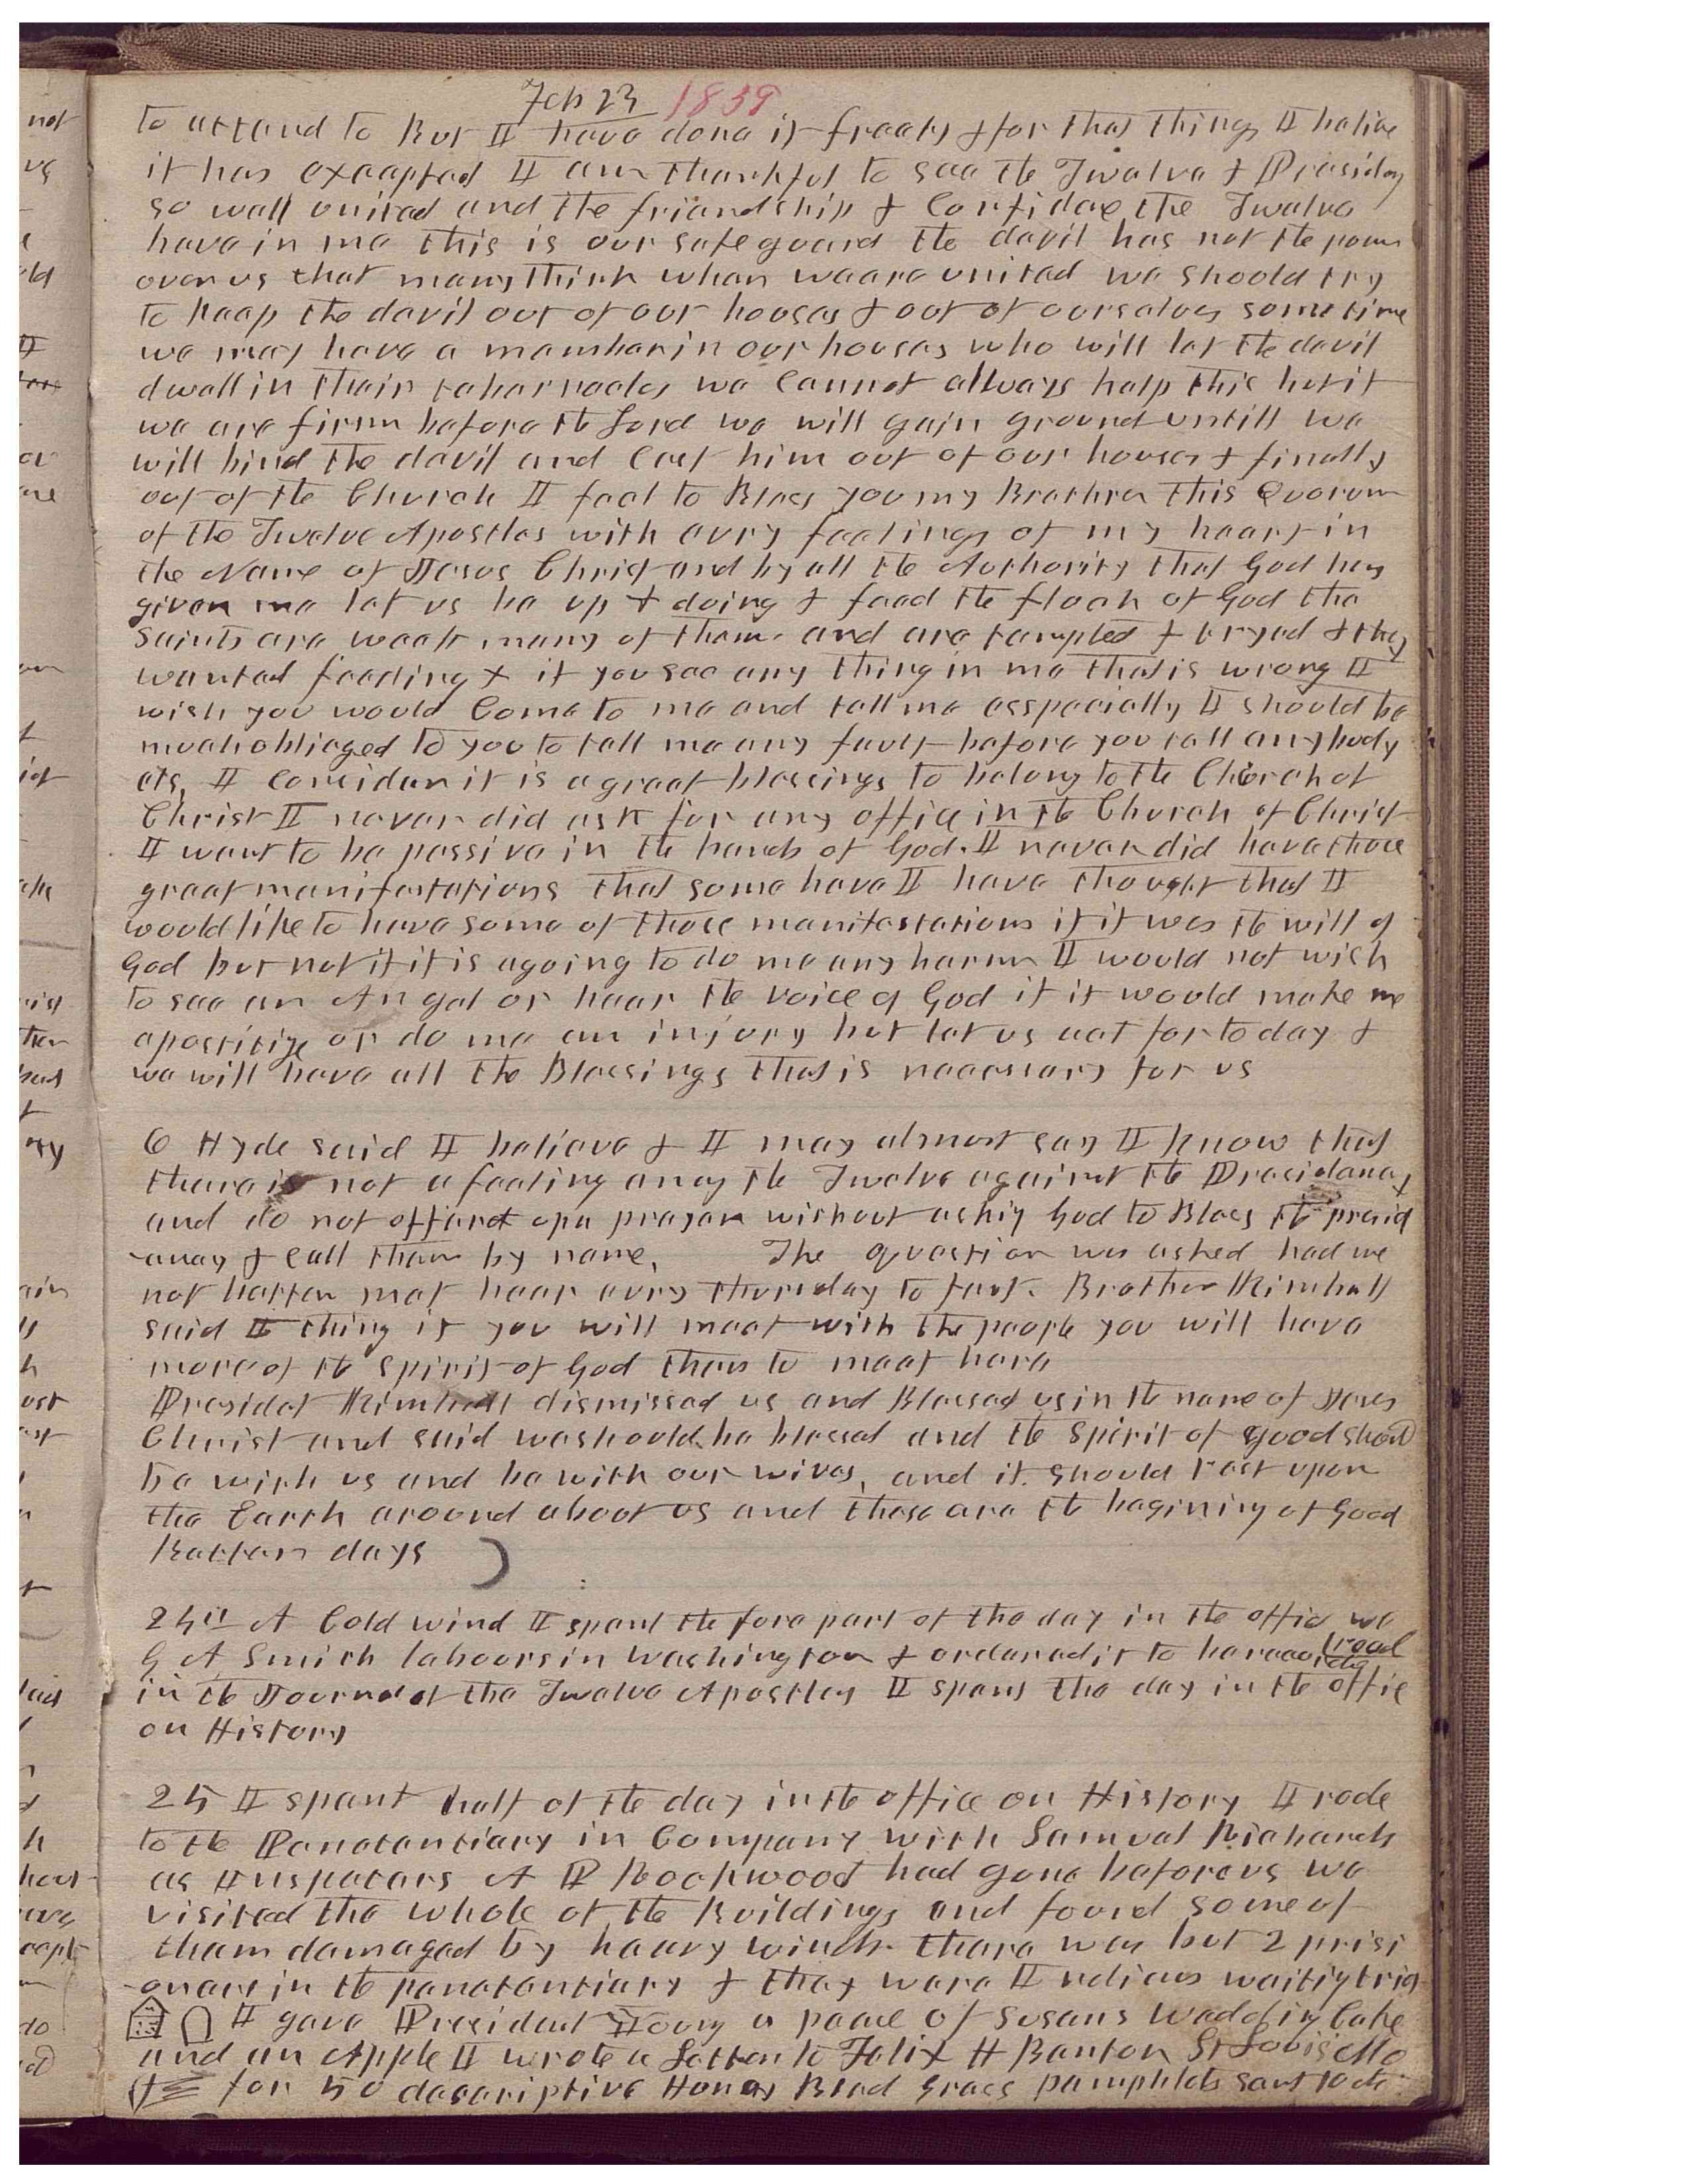 Feb 23 1859
to attend to But I have done it freely & for that things I believe
it has excepted I am thankful to see the Twelve & Presidey
so well united and the friendship & Confidece the Twelve
have in me this is our safe guard the devil has not the power
over us that many think when we are united we should try
to keep the devil out of our houses & out of ourselves some time
we may have a member in our houses who will let the devil
dwell in their tabernacles we Cannot allways help this but if
we are firm before the Lord we will gain ground untill we
will bind the devil and Cast him out of our houses & finally
out of the Church I feel to Bless you my Brethren this Quorum
of the Twelve Apostles with evry feelings of my heart in
the Name of Jesus Christ and by all the Authority that God has
given me let us be up & doing & feed the flock of God the
saints are weak many of them and are tempted & tryed & they
wanted feeding & if you see any thing in me that is wrong I
wish you would Come to me and tell me esspecially I should be
much obliged to you to tell me any fault before you tell any body
els, I Consider it is a great blessings to belong to the Church of
Christ I never did ask for any office in the Church of Christ
I want to be passive in the hands of God. I never did have those
great manifestations that some have I have thought that I
would like to have some of those manifestations if it was the will of
God but not if it is agoing to do me any harm I would not wish
to see an Angel or hear the voice of God if it would make me
apostitize or do me an injury but let us act for to day &
we will have all the Blessings that is necessary for us
O Hyde said I believe & I may almost say I know that
there is not a feeling among the Twelve against the Presidency
and do not offer up a prayer without asking God to Bless the presid
-ency & Call them by name, The question was asked had we
not better meet hear evry thursday to fast. Brother Kimball
said I thing if you will meet with the people you will have
more of the spirit of God than to meet here
Presidet Kimball dismissed us and Blessed us in the name of Jesus
Christ and said we should be blessed and the spirit of good should
be with us and be with our wives, and it should rest upon
the Earth around about us and these are the begining of Good
Better days
24th A Cold wind I spent the fore part of the day in the offie we
G A Smith labours in washington & ordered it to be recorded
in the Journal of the Twelve Apostles I spent the day in the offie
on History
25 I spent half of the day in the office on History I rode
to the Penetentiary in Company with Samuel Richards
as Inspectors A P Rockwood had gone before us we
visited the whole of the Buildings and found some of
them damaged by heavy winds. there was but 2 prisi
-oners in the penetentiary & they were Indians waiting trig
I gave President Young a peace of Susans Wedding Cake
and an Apple I wrote a Letter to Felix H Benton St Louis Mo
for 50 descriptive Honey Blad Grass pamphlets sent 10 cts